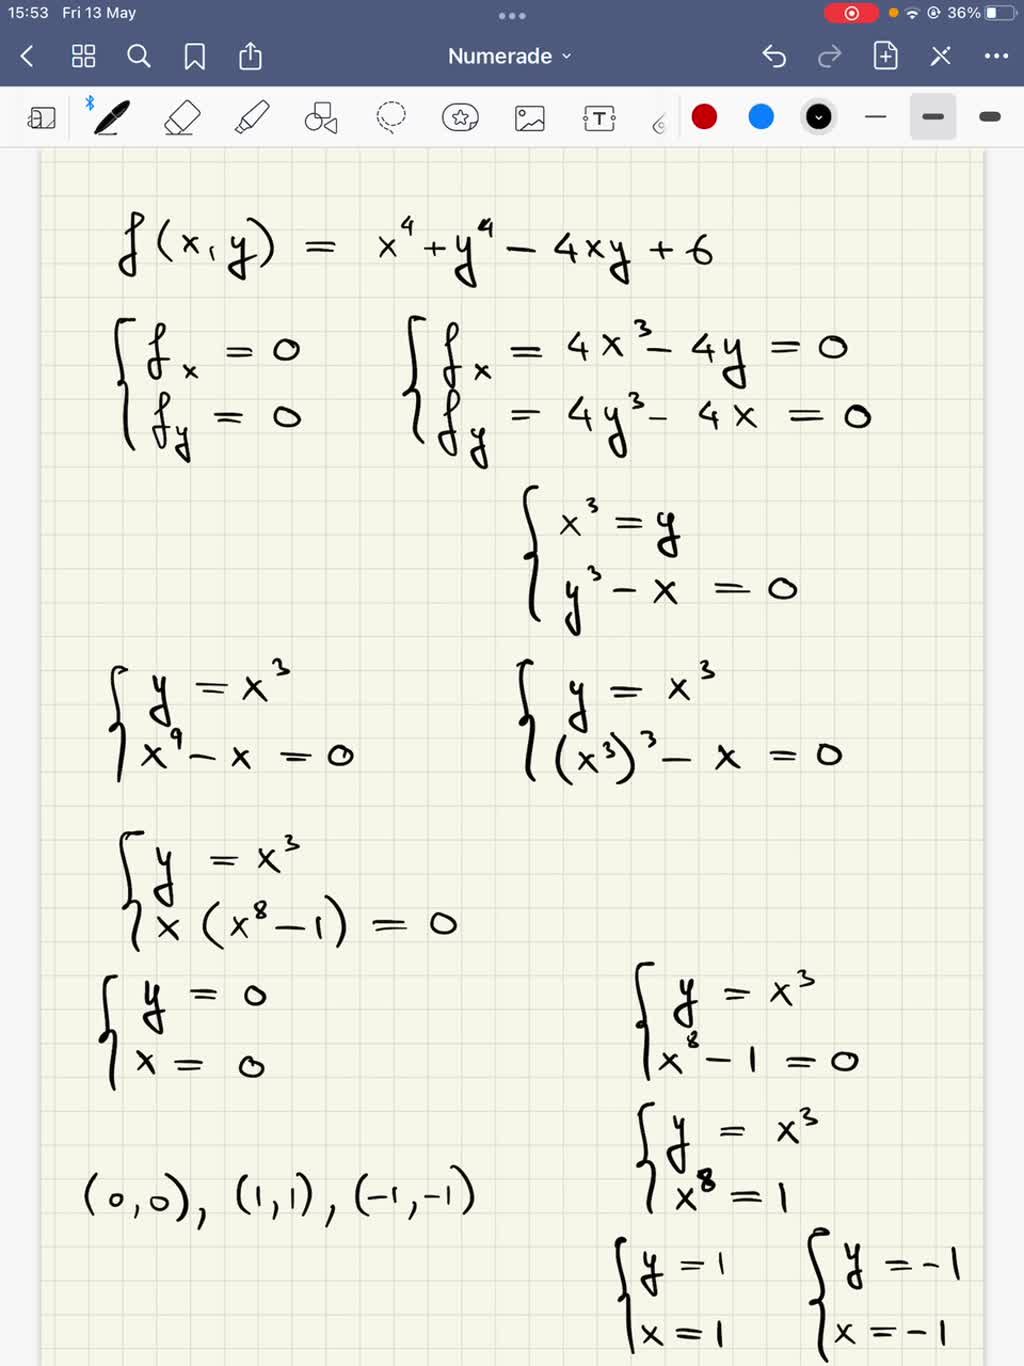 15:53 Fri 13 May 36%
Numerade
f(x,y) = x⁴ + y⁴ - 4xy + 6
{ fx = 0 { fx = 4x³ - 4y = 0
fy = 0 fy = 4y³ - 4x = 0
{ x³ = y
y³ - x = 0
{ y = x³ { y = x³
x⁹ - x = 0 (x³)³ - x = 0
{ y = x³
x (x⁸ - 1) = 0
{ y = 0 { y = x³
x = 0 x⁸ - 1 = 0
{ y = x³
(0,0), (1,1), (-1,-1) x⁸ = 1
{ y = 1 { y = -1
x = 1 x = -1